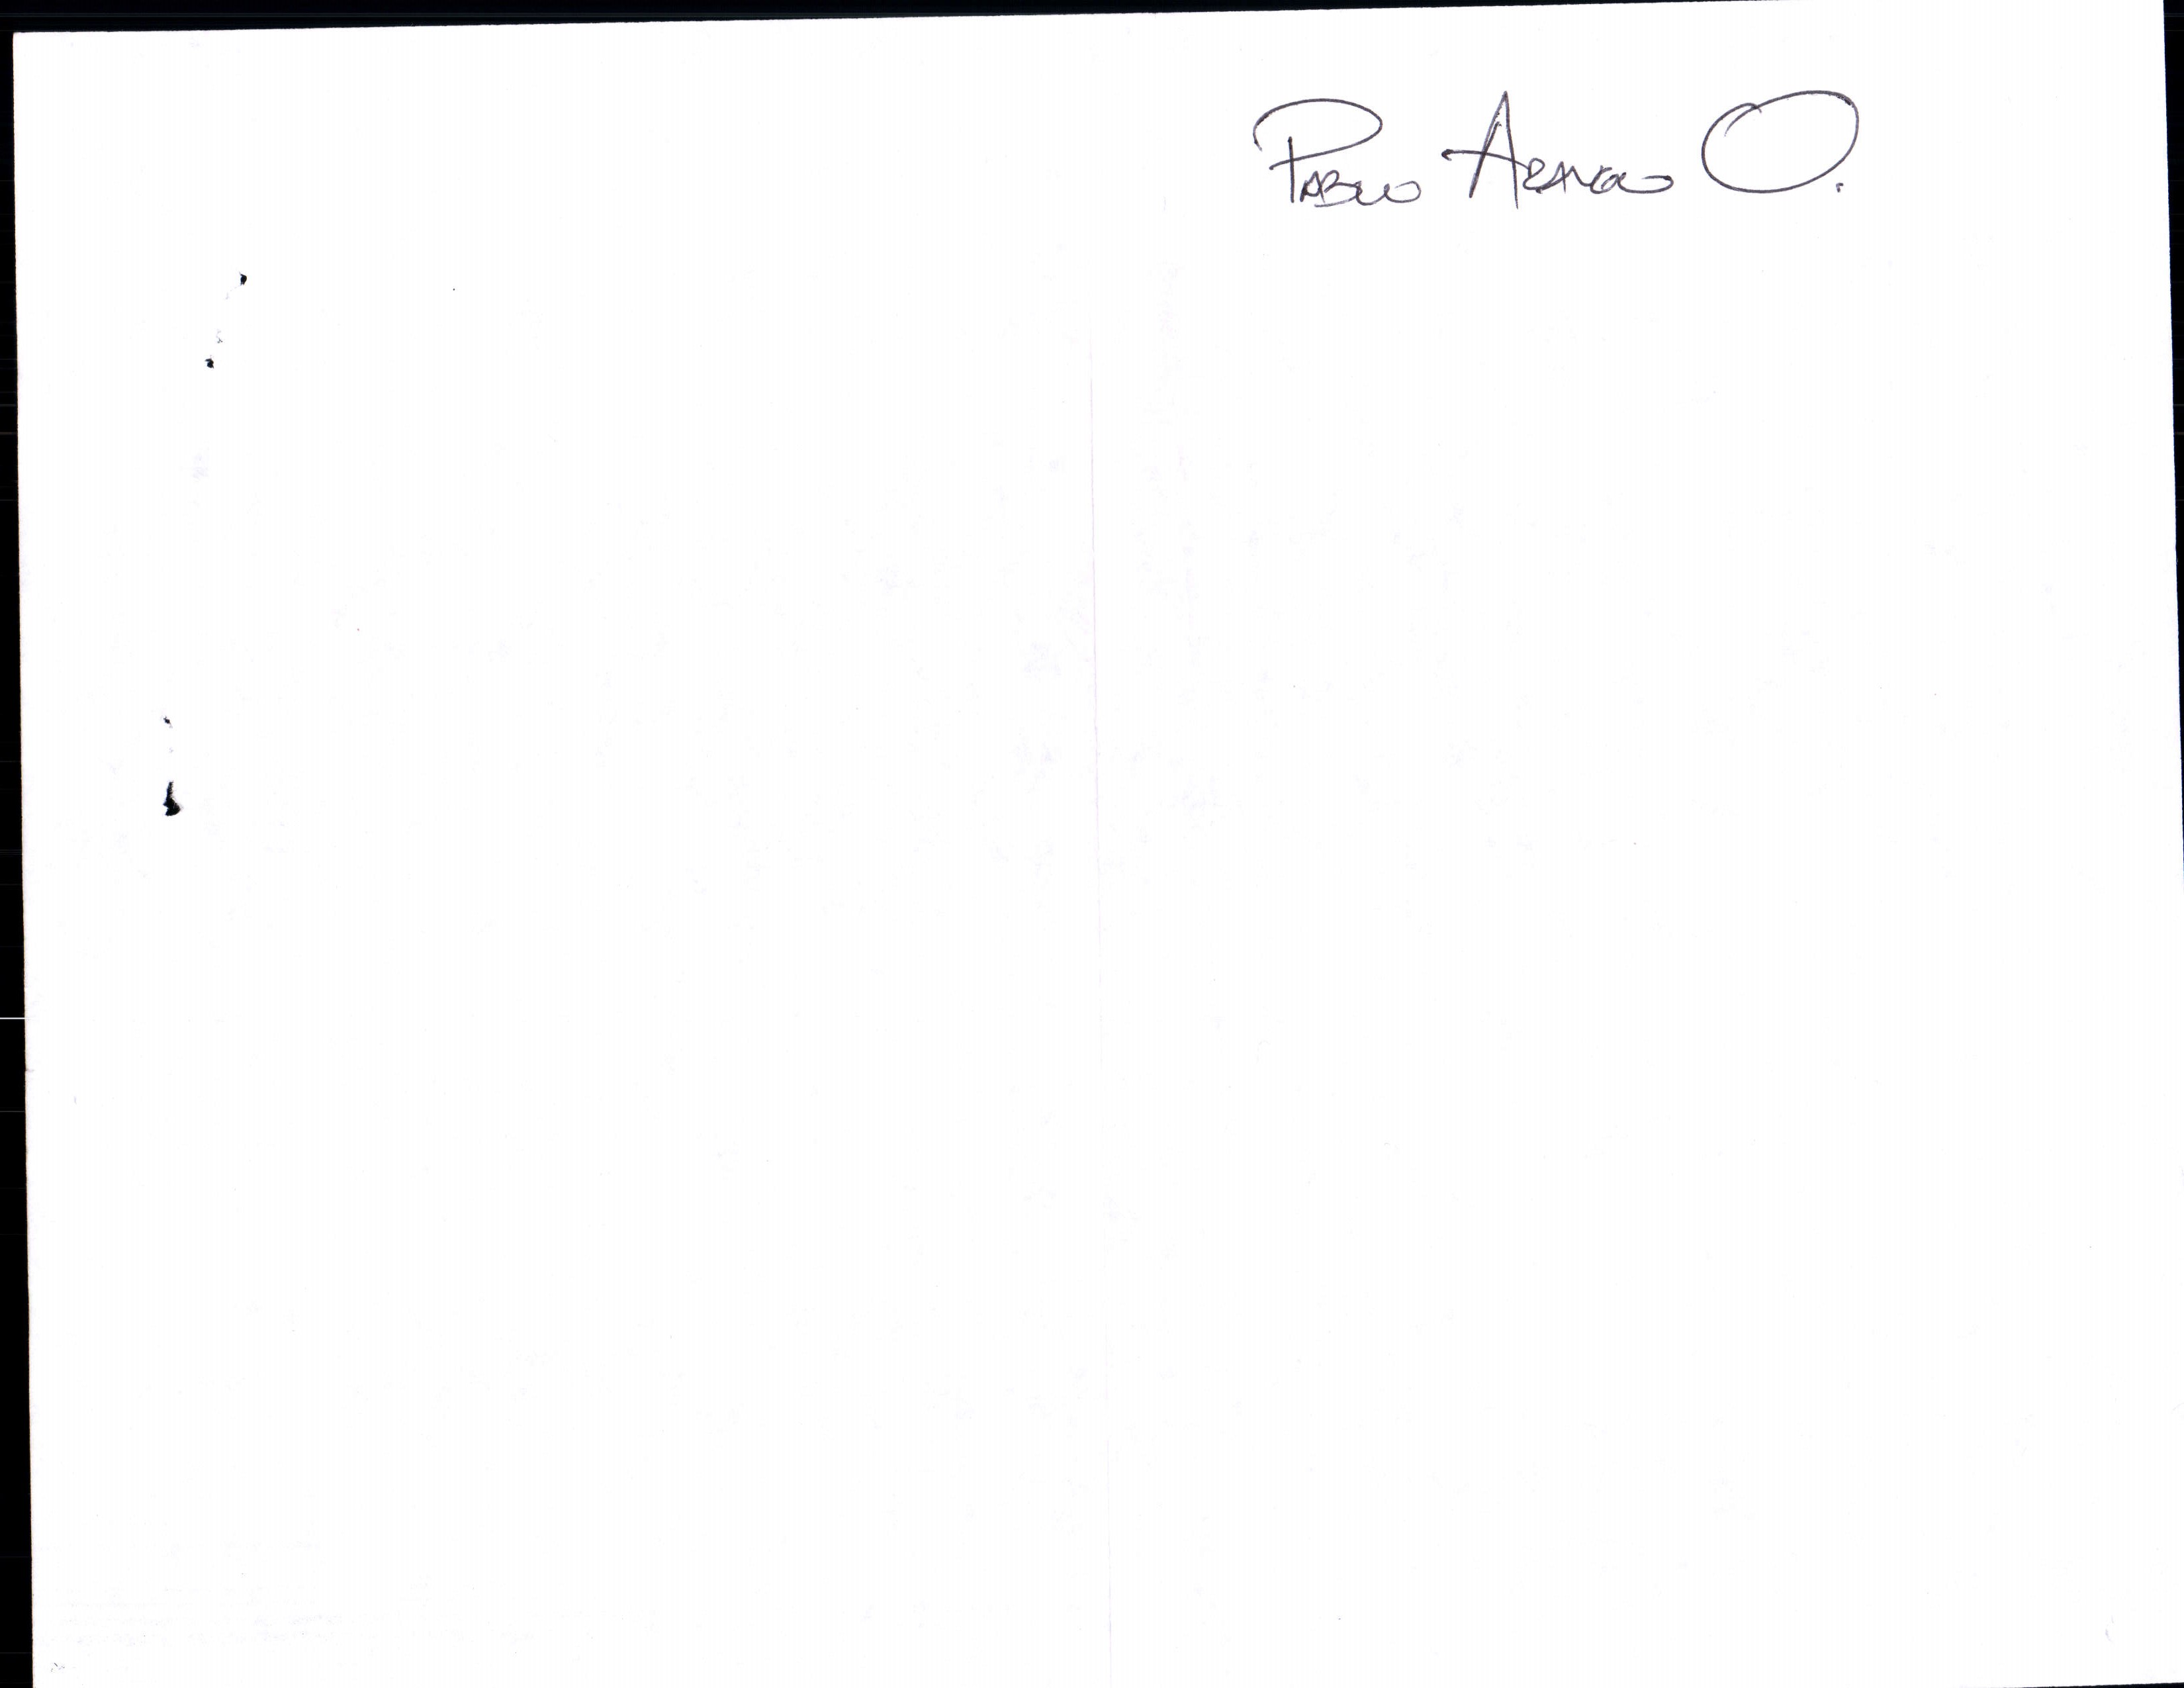 Pablo Arango O.